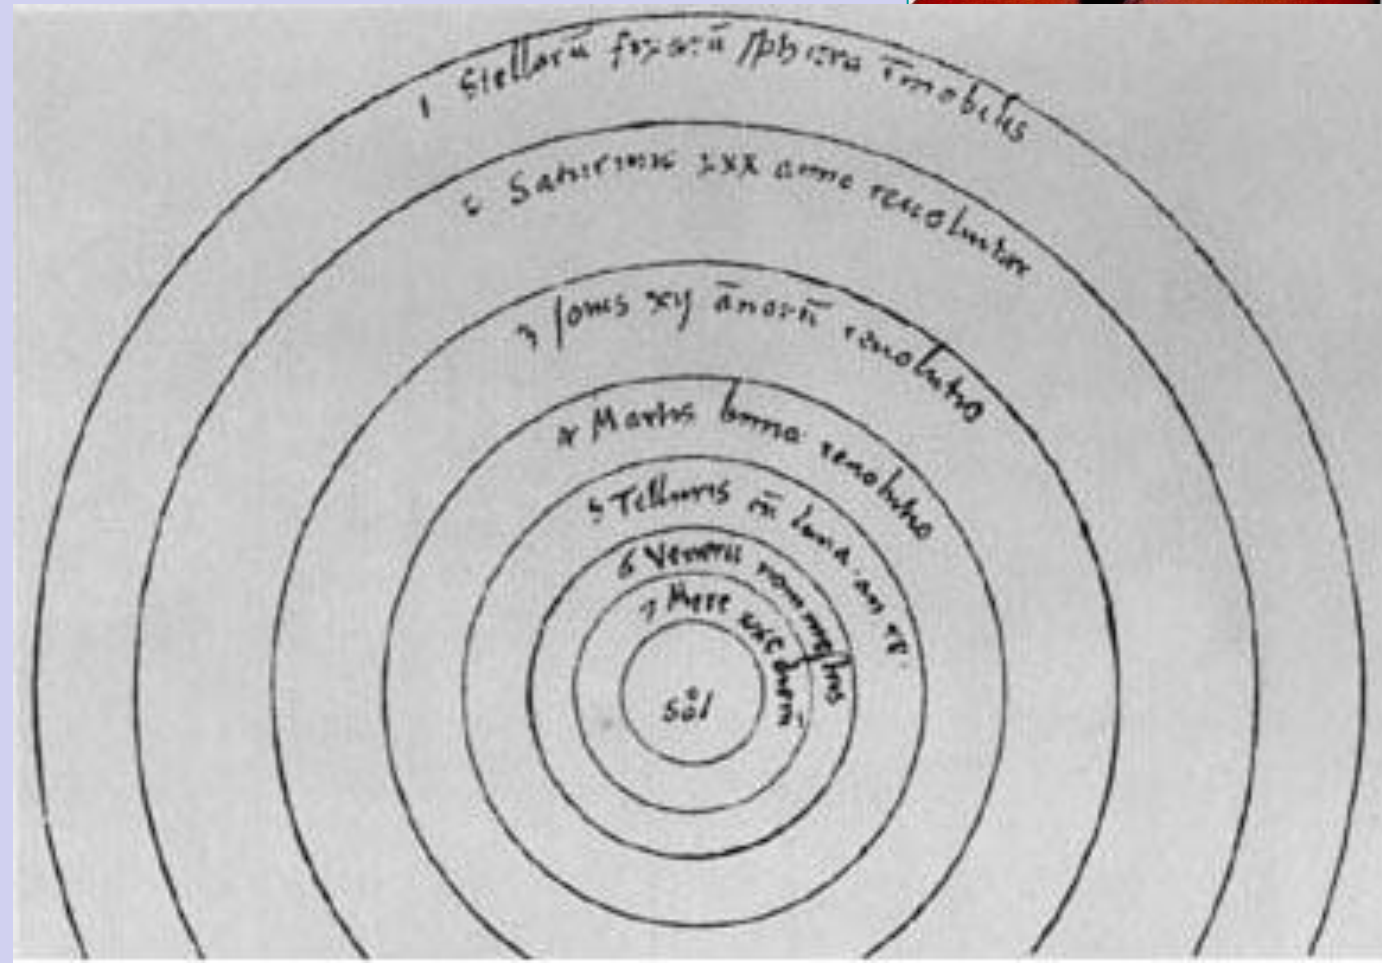 1 Stellarū fixarū sphæra īmobilis
2 Saturnus xxx anno reuoluitur
3 Jouis xij ānorū reuolutio
4 Martis bima reuolutio
5 Telluris cū luna an re
6 Veneris nonimestris
7 Merc xxc dierū
Sol